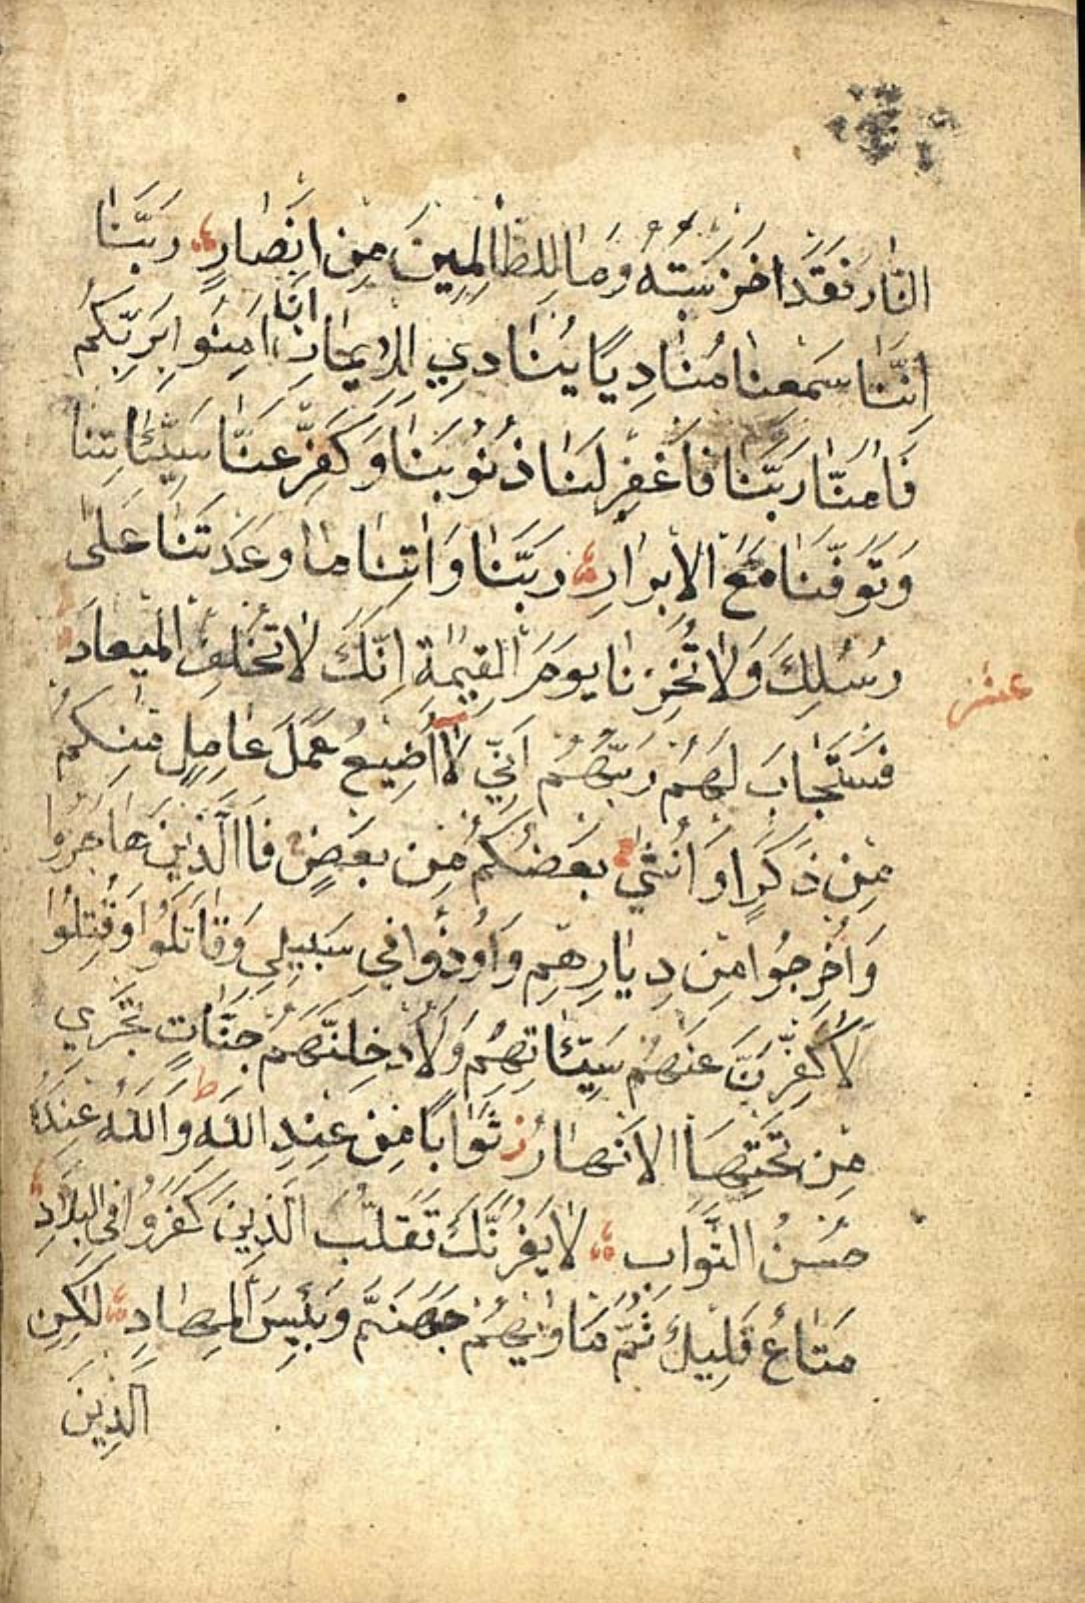 النَّارَ فَقَدْ اَخْزَيْتَهُ وَمَا لِلظَّالِمِينَ مِنْ اَنْصَارٍ رَبَّنَا
اِنَّنَا سَمِعْنَا مُنَادِيًا يُنَادِي لِلْاِيمَانِ اَنْ اٰمِنُوا بِرَبِّكُمْ
فَاٰمَنَّا رَبَّنَا فَاغْفِرْ لَنَا ذُنُوبَنَا وَكَفِّرْ عَنَّا سَيِّئَاتِنَا
وَتَوَفَّنَا مَعَ الْاَبْرَارِ رَبَّنَا وَاٰتِنَا مَا وَعَدْتَنَا عَلٰى
رُسُلِكَ وَلَا تُخْزِنَا يَوْمَ الْقِيٰمَةِ اِنَّكَ لَا تُخْلِفُ الْمِيعَادَ
عشر
فَسْتَجَابَ لَهُمْ رَبُّهُمْ اَنِّي لَا اُضِيعُ عَمَلَ عَامِلٍ مِنْكُمْ
مِنْ ذَكَرٍ اَوْ اُنْثٰى بَعْضُكُمْ مِنْ بَعْضٍ فَاالَّذِينَ هَاجَرُوا
وَاُخْرِجُوا مِنْ دِيَارِهِمْ وَاُوذُوا فِي سَبِيلِي وَقَاتَلُوا وَقُتِلُوا
لَاُكَفِّرَنَّ عَنْهُمْ سَيِّئَاتِهِمْ وَلَاُدْخِلَنَّهُمْ جَنَّاتٍ تَجْرِي
مِنْ تَحْتِهَا الْاَنْهَارُ ز ثَوَابًا مِنْ عِنْدِ اللّٰهِ ط وَاللّٰهُ عِنْدَهُ
حُسْنُ الثَّوَابِ لَا يَغُرَّنَّكَ تَقَلُّبُ الَّذِينَ كَفَرُوا فِي الْبِلَادِ
مَتَاعٌ قَلِيلٌ ثُمَّ مَاْوٰيهُمْ جَهَنَّمُ وَبِئْسَ الْمِهَادِ لٰكِنِ
الَّذِينَ